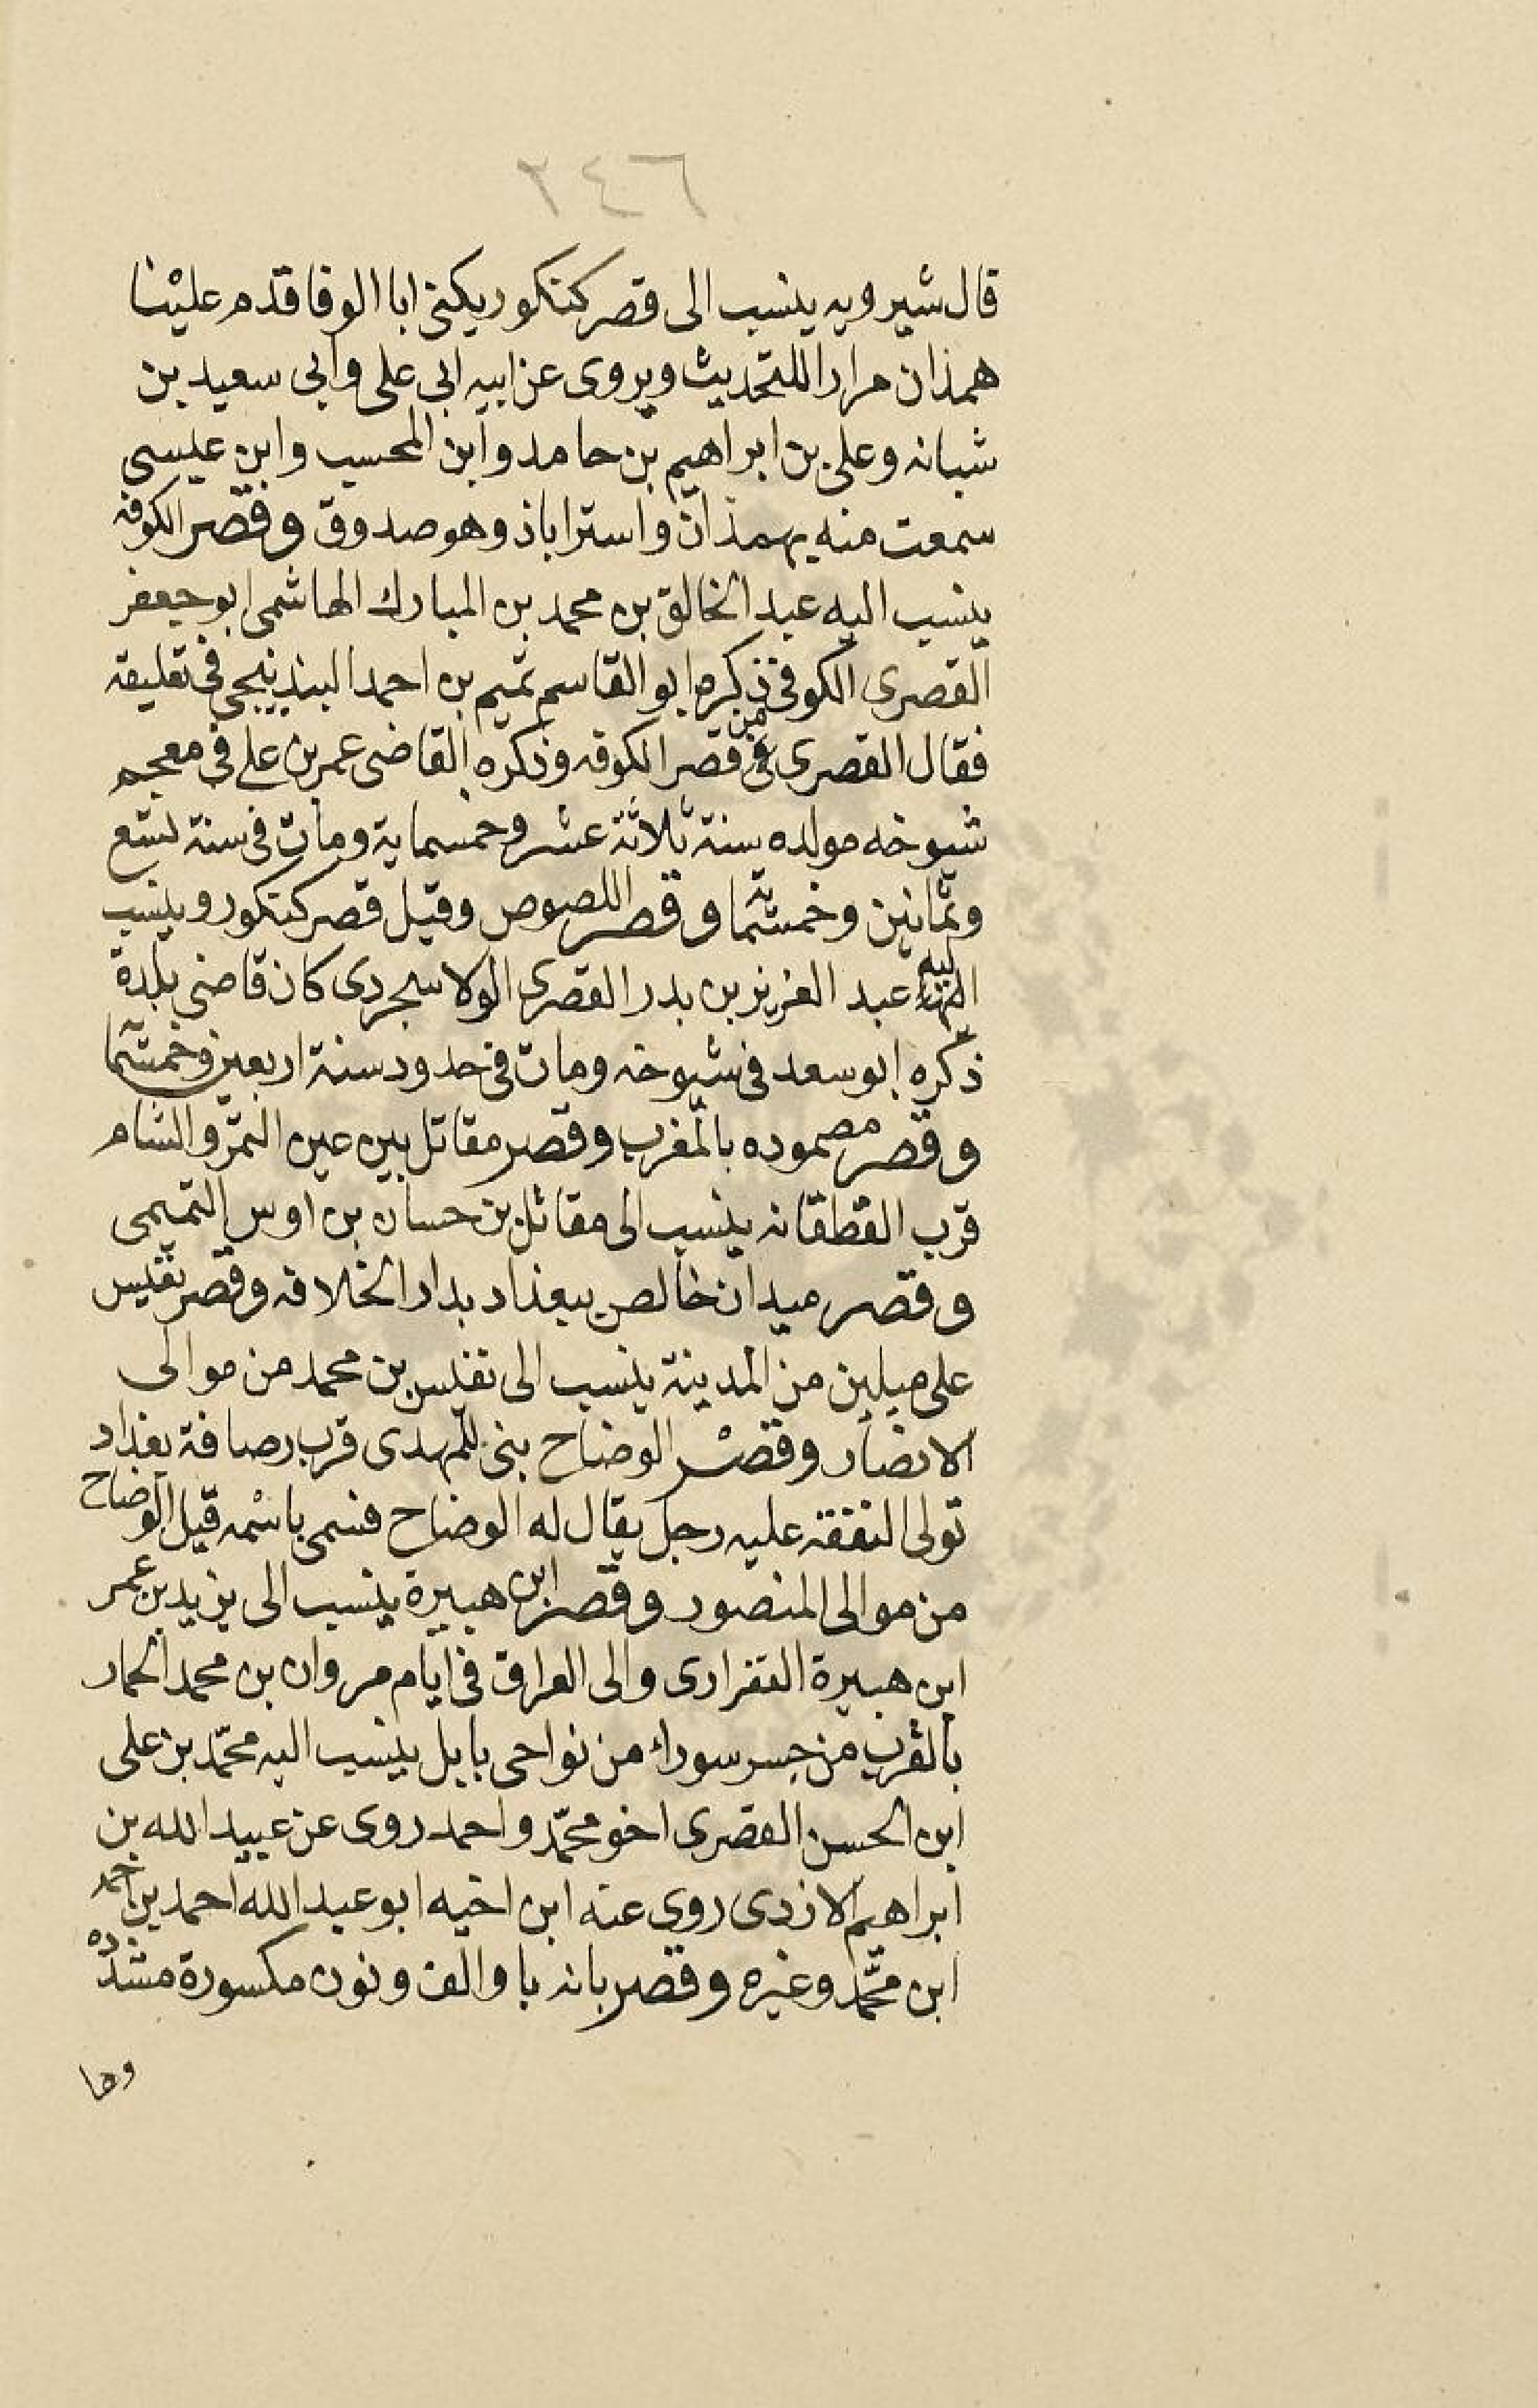 ٢٤٦
قال شيرويه ينسب الى قصر كنكور يكنى ابا الوفا قدم علينا
همذان مرارا للتحديث ويروى عن ابيه ابى على وابى سعيد بن
شبانه وعلى بن ابراهيم بن حامد وابن المحسب وابن عيسى
سمعت منه بهمذان واستراباذ وهو صدوق وقصر الكوفه
ينسب اليه عبد الخالق بن محمد بن المبارك الهاشمى ابو جعفر
القصرى الكوفى ذكره ابو القاسم تميم بن احمد البندنيجى فى تعليقه
فقال القصرى من قصر الكوفه وذكره القاضى عمر بن على فى معجم
شيوخه مولده سنة ثلاثة عشر وخمسماية ومات فى سنة تسع
وثمانين وخمسماية وقصر اللصوص وقيل قصر كنكور وينسب
اليه عبد العزيز بن بدر القصرى الولاسجردى كان قاضى بلدة
ذكره ابو سعد فى شيوخه ومات فى حدود سنة اربعين وخمسما
وقصر مصموده بالمغرب وقصر مقاتل بين عين التمر والشام
قرب القطقانه ينسب الى مقاتل بن حسان بن اوس التميمى
وقصر ميدان خالص ببغداد بدار الخلافه وقصر نفيس
على ميلين من المدينة ينسب الى نفيس بن محمد من موالى
الانصار وقصر الوضاح بنى للمهدى قرب رصافة بغداد
تولى النفقه عليه رجل يقال له الوضاح فسمى باسمه قيل الوضاح
من موالى المنصور وقصر ابن هبيرة ينسب الى يزيد بن عمر
ابن هبيرة الفزارى والى العراق فى ايام مروان بن محمد الحمار
بالقرب من جسر سوراء من نواحى بابل ينسب اليه محمّد بن على
ابن الحسن القصرى اخو محمّد واحمد روى عن عبيد الله بن
ابراهيم الازدى روى عنه ابن اخيه ابو عبد الله احمد بن احمد
ابن محمّد وغيره وقصر بانه با والف ونون مكسورة مشدّده
وها